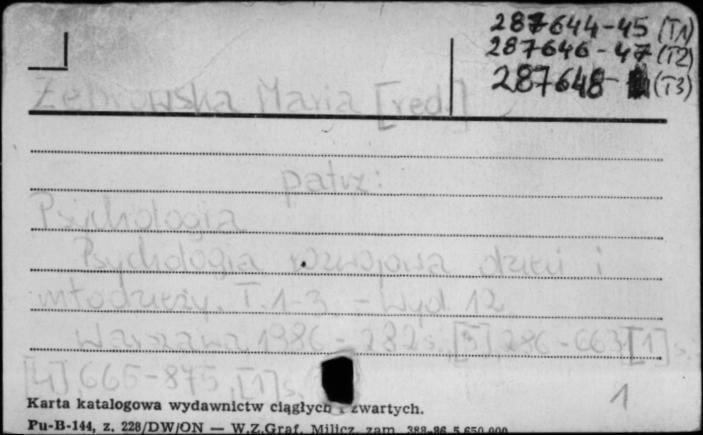 287644-45 (T1)
287646-47 (T2)
287648- (T3)
Żebrowska Maria [red.]
patrz:
Psychologia
Psychologia rozwojowa dzieci i
młodzieży. T.1-3. - Wyd. 12
Warszawa 1986 - 282 s., [5], 286-663, [1] s.,
[4], 665-875, [1] s.
1
Karta katalogowa wydawnictw ciągłych i zwartych.
Pu-B-144, z. 228/DW/ON — W.Z.Graf. Milicz, zam. 388-86 5.650.000